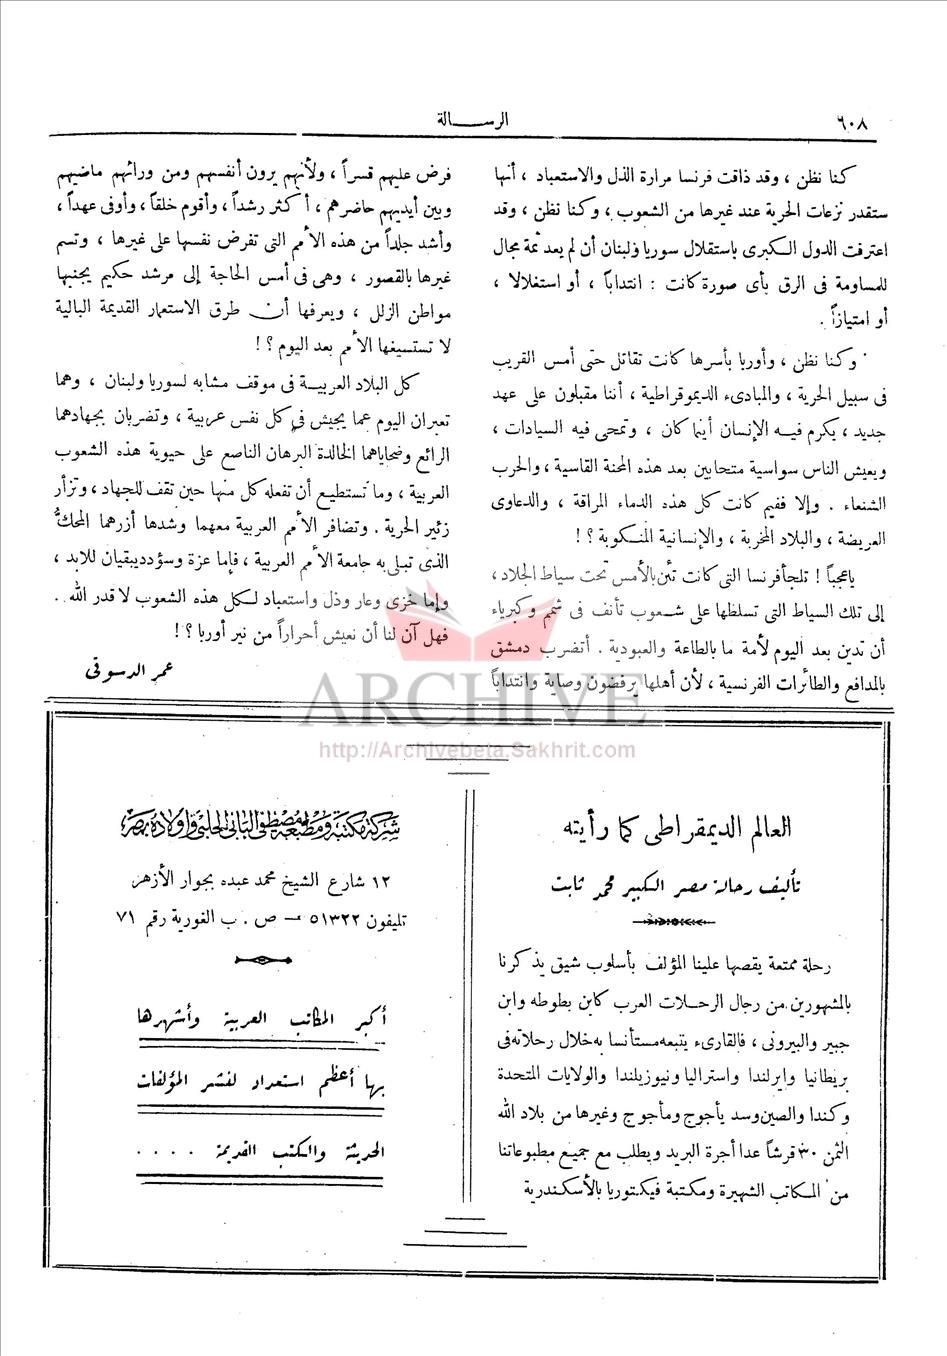 ٦٠٨
الرسـالة
كنا نظن ، وقد ذاقت فرنسا مرارة الذل والاستعباد ، أنها
ستقدر نزعات الحرية عند غيرها من الشعوب ، وكنا نظن ، وقد
اعترفت الدول الكبرى باستقلال سوريا ولبنان أن لم يعد ثمة مجال
للمساومة فى الرق بأى صورة كانت : انتداباً ، أو استغلالا ،
أو امتيازاً .
وكنا نظن ، وأوربا بأسرها كانت تقاتل حتى أمس القريب
فى سبيل الحرية ، والمبادىء الديموقراطية ، أننا مقبلون على عهد
جديد ، يكرم فيه الإنسان أينما كان ، وتمحى فيه السيادات ،
ويعيش الناس سواسية متحابين بعد هذه المحنة القاسية ، والحرب
الشنعاء . وإلا ففيم كانت كل هذه الدماء المراقة ، والدعاوى
العريضة ، والبلاد المخربة ، والإنسانية المنكوبة ؟ !
ياعجباً ! تلجأ فرنسا التى كانت تئن بالأمس تحت سياط الجلاد ،
إلى تلك السياط التى تسلطها على شعوب تأنف فى شمم وكبرياء
أن تدين بعد اليوم لأمة ما بالطاعة والعبودية . أتضرب دمشق
بالمدافع والطائرات الفرنسية ، لأن أهلها يرفضون وصاية وانتداباً
فرض عليهم قسراً ، ولأنهم يرون أنفسهم ومن ورائهم ماضيهم
وبين أيديهم حاضرهم ، أكثر رشداً ، وأقوم خلقاً ، وأوفى عهداً ،
وأشد جلداً من هذه الأمم التى تفرض نفسها على غيرها ، وتسم
غيرها بالقصور ، وهى فى أمس الحاجة إلى مرشد حكيم يجنبها
مواطن الزلل ، ويعرفها أن طرق الاستعمار القديمة البالية
لا تستسيغها الأمم بعد اليوم ؟ !
كل البلاد العربية فى موقف مشابه لسوريا ولبنان ، وهما
تعبران اليوم عما يجيش فى كل نفس عربية ، وتضربان بجهادهما
الرائع وضحاياهما الخالدة البرهان الناصع على حيوية هذه الشعوب
العربية ، وما تستطيع أن تفعله كل منها حين تقف للجهاد ، وتزأر
زئير الحرية . وتضافر الأمم العربية معهما وشدها أزرهما المحكُّ
الذى تبلى به جامعة الأمم العربية ، فإما عزة وسؤدد يبقيان للابد ،
وإما خزى وعار وذل واستعباد لكل هذه الشعوب لا قدر الله .
فهل آن لنا أن نعيش أحراراً من نير أوربا ؟ !
عمر الدسوقى
ARCHIVE
http://Archivebeta.Sakhrit.com
العالم الديمقراطى كما رأيته
تأليف رحالة مصر الكبير محمد ثابت
رحلة ممتعة يقصها علينا المؤلف بأسلوب شيق يذكرنا
بالمشهورين من رجال الرحلات العرب كابن بطوطه وابن
جبير والبيرونى ، فالقارىء يتبعه مستأنسا به خلال رحلاته فى
بريطانيا وايرلندا واستراليا ونيوزيلندا والولايات المتحدة
وكندا والصين وسد يأجوج ومأجوج وغيرها من بلاد الله
الثمن ٣٠ قرشاً عدا أجرة البريد ويطلب مع جميع مطبوعاتنا
من المكاتب الشهيرة ومكتبة فيكتوريا بالأسكندرية
شركة مكتبة ومطبعة مصطفى البابى الحلبى وأولاده بمصر
١٢ شارع الشيخ محمد عبده بجوار الأزهر
تليفون ٥١٣٢٢ — ص . ب الغورية رقم ٧١
أكبر المكاتب العربية وأشهرها
بها أعظم استعداد لنشر المؤلفات
الحديثة والكتب القديمة . . . .